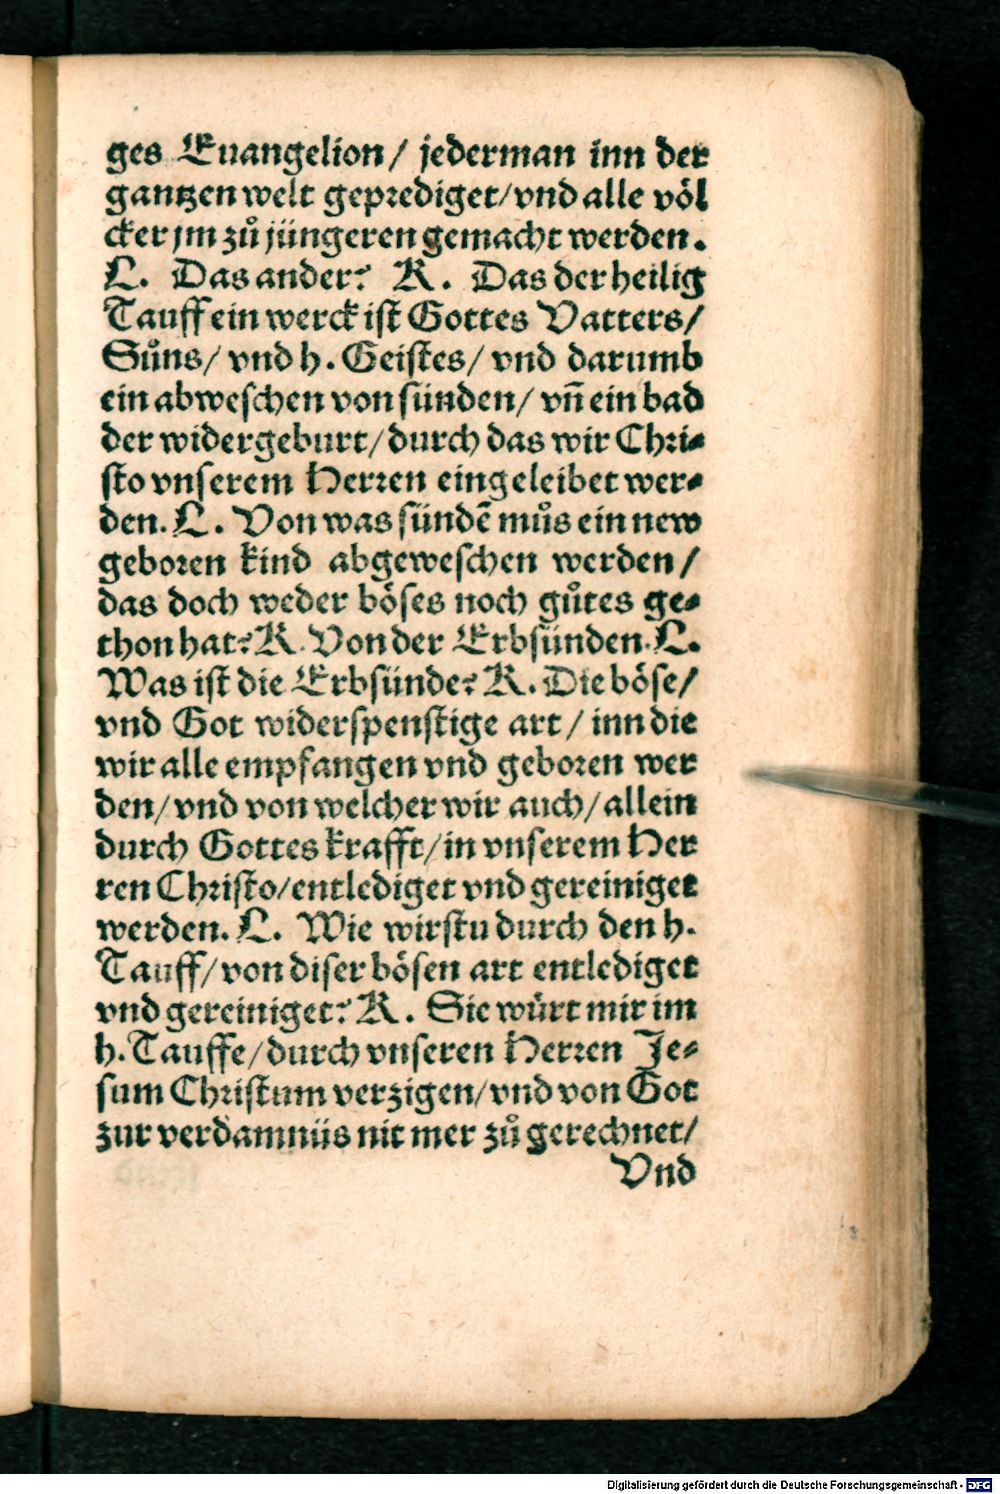 ges Euangelion/ jederman inn der
gantzen welt geprediget/vnd alle völ
cker jm zů jüngeren gemacht werden.
L. Das ander? K. Das der heilig
Tauff ein werck ist Gottes Vatters/
Sůns/ vnd h. Geistes/ vnd darumb
ein abweschen von sünden/ vn̄ ein bad
der widergeburt/durch das wir Chri-
sto vnserem Herren eingeleibet wer-
den. L. Von was sündē můs ein new
geboren kind abgeweschen werden/
das doch weder böses noch gůtes ge-
thon hat? K. Von der Erbsünden. L.
Was ist die Erbsünde? K. Die böse/
vnd Got widerspenstige art/ inn die
wir alle empfangen vnd geboren wer
den/ vnd von welcher wir auch/ allein
durch Gottes krafft/in vnserem Her
ren Christo/entlediget vnd gereiniget
werden. L. Wie wirstu durch den h.
Tauff/von diser bösen art entlediget
vnd gereiniget? K. Sie würt mir im
h. Tauffe/durch vnseren Herren Je-
sum Christum verzigen/vnd von Got
zur verdamnüs nit mer zů gerechnet/
Vnd
Digitalisierung gefördert durch die Deutsche Forschungsgemeinschaft - DFG